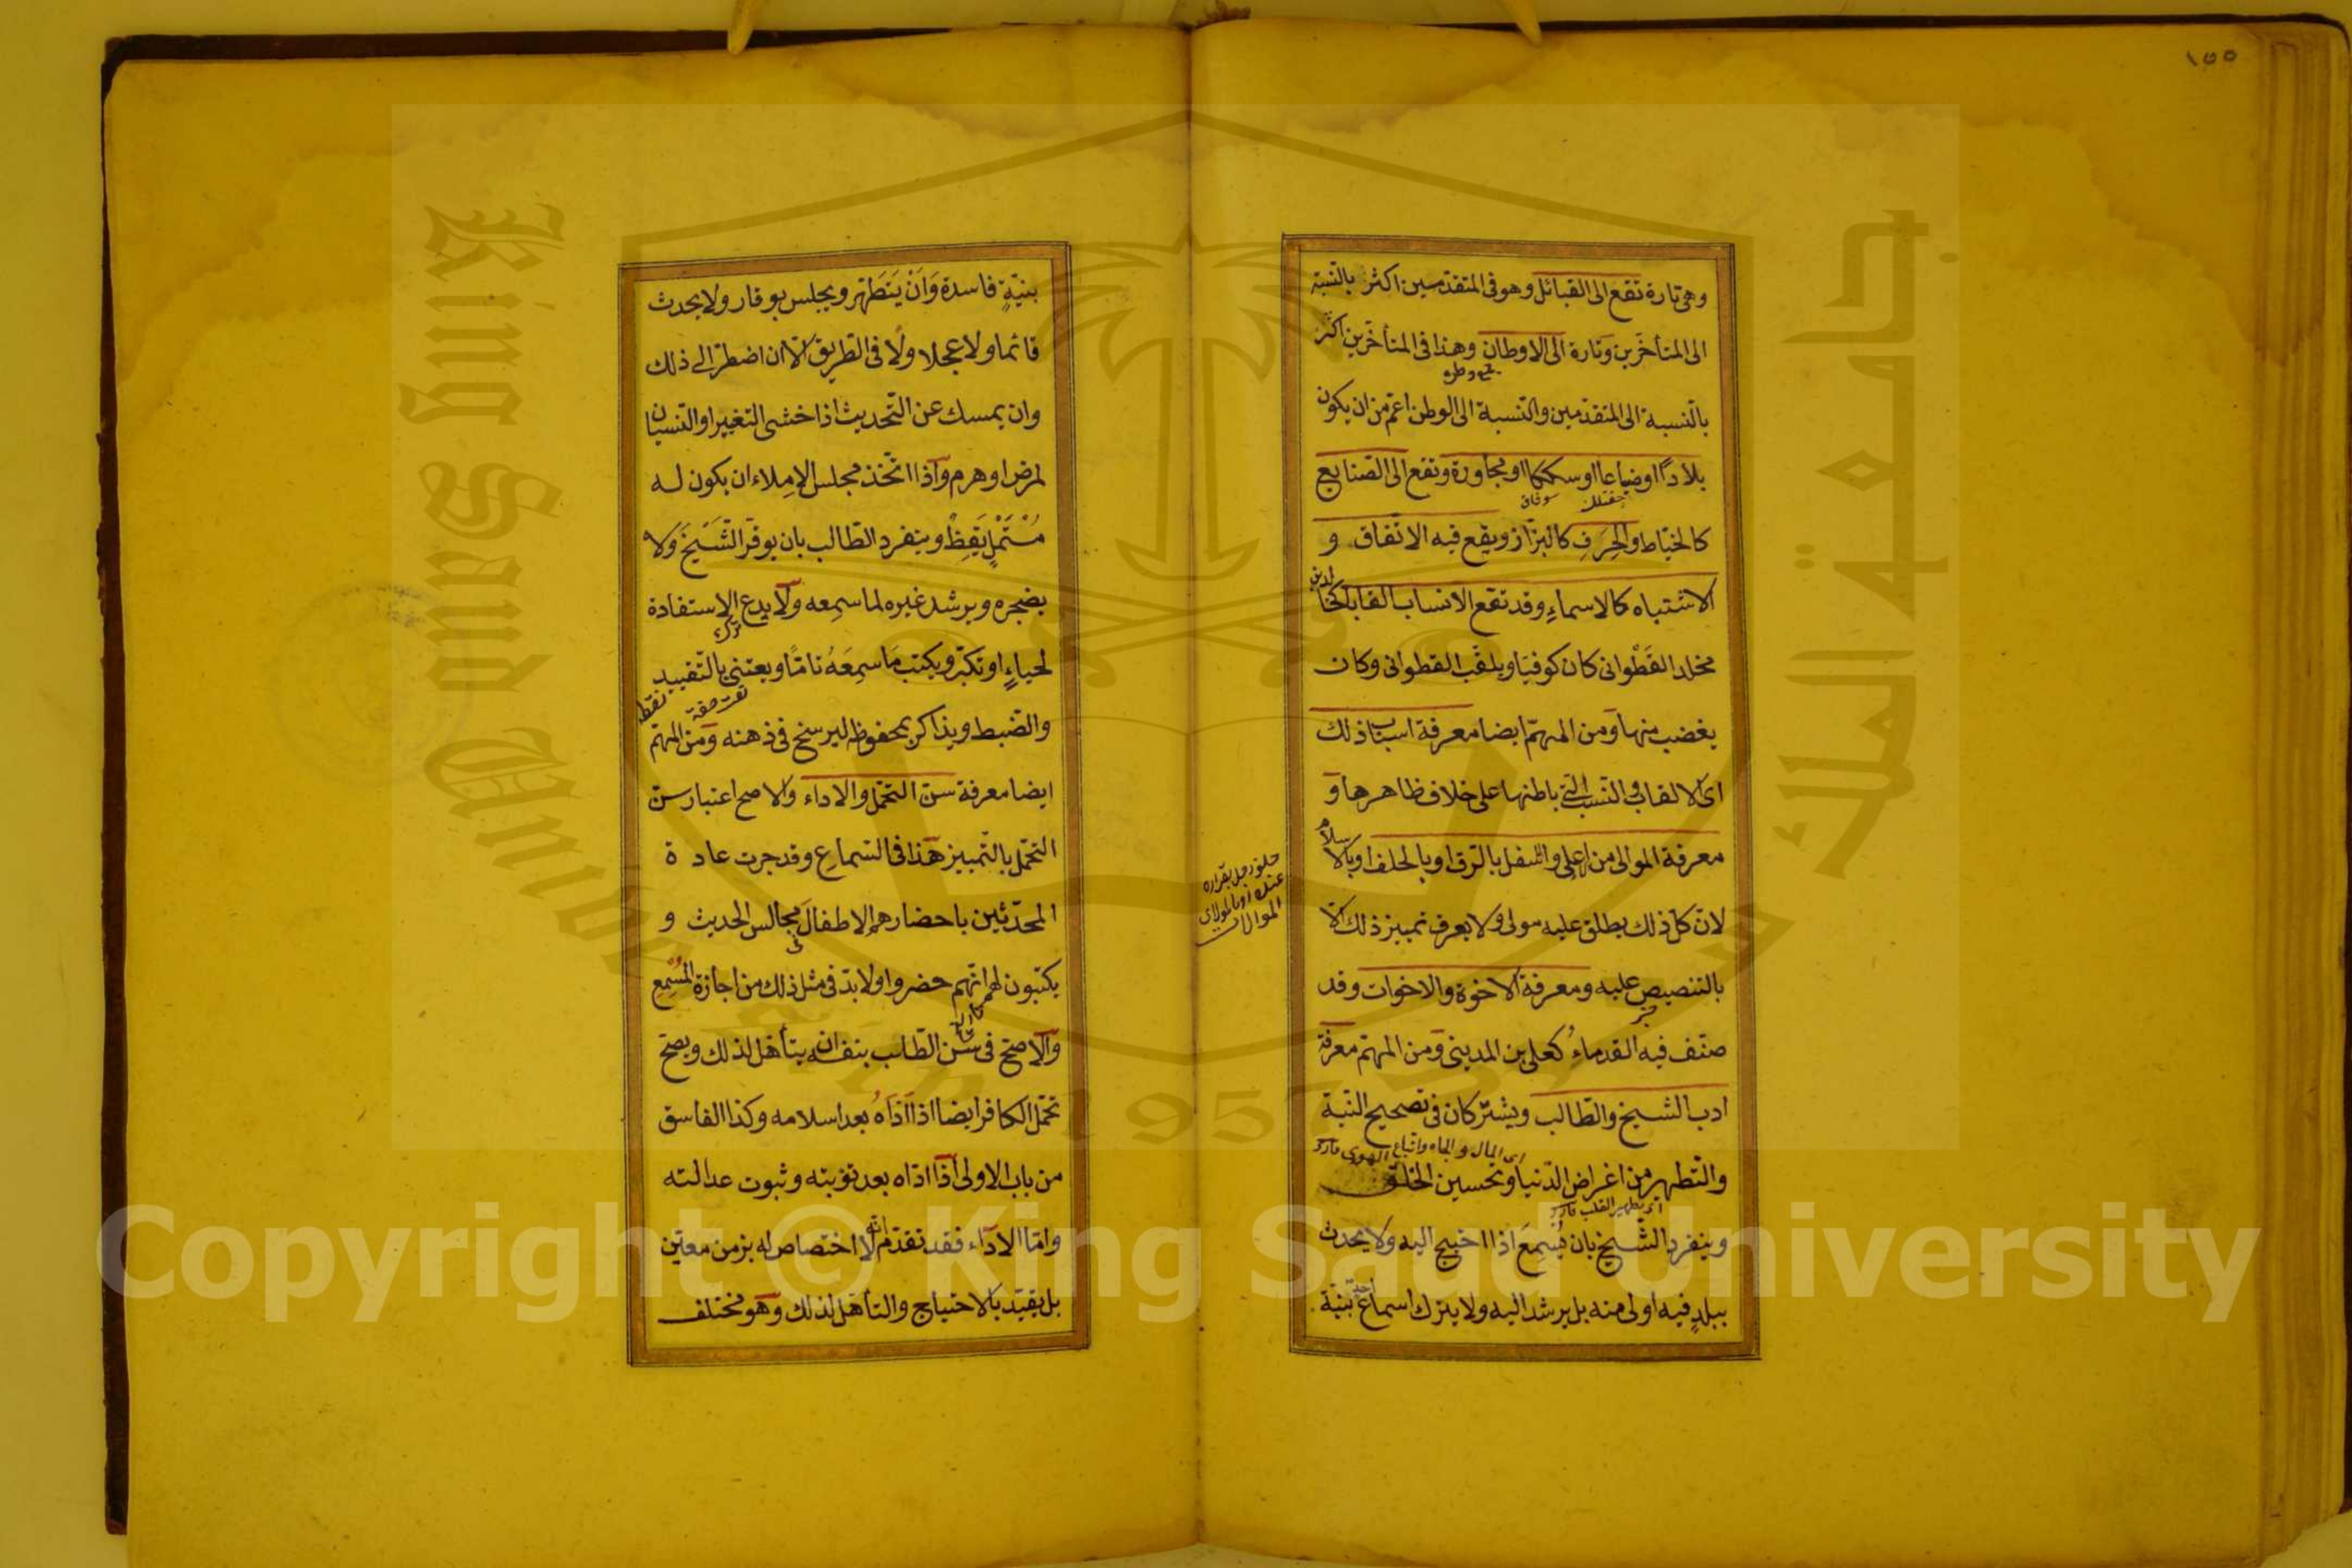 ١٥٥
وهي تارة تقع الى القبائل وهو في المتقدمين اكثر بالنسبة
الى المتأخرين وتارة الى الاوطان وهذا في المتأخرين اكثر
بالنسبة الى المتقدمين والنسبة الى الوطن اعم من ان يكون
بلادًا اوضياعا اوسككا او مجاورة وتقع الى الصنايع
كالخياط والحِرَفِ كالبزّاز ويقع فيه الاتفاق و
الاشتباه كالاسماءِ وقد تقع الانساب القابا كخالد بن
مخلد القَطْوانى كان كوفيا ويلقب القطوانى وكان
يغضب منها ومن المهمّ ايضا معرفة اسباب ذلك
اى الالقاب والنسب التى باطنها على خلاف ظاهرها و
معرفة الموالى من اعلى واسفل بالرق او بالحلف او بالاسلام
لان كل ذلك يطلق عليه مولى ولا يعرف تمييز ذلك الا
بالتنصيص عليه ومعرفة الاخوة والاخوات وقد
صنّف فيه القدماءُ كعلى بن المدينى ومن المهم معرفة
ادب الشيخ والطالب ويشتركان فى تصحيح النية
اى المال والجاه واتباع الهوى
والتطهر من اغراض الدنيا وتحسين الخلق
اى تطهير القلب
وينفرد الشيخ بان يُسمِعَ اذا احتيج اليه ولا يحدث
ببلدٍ فيه اولى منه بل يرشد اليه ولا يترك اسماع احد بنية
بنيّةٍ فاسدة وَاَنْ يَتَطَهّر ويجلس بوقار ولا يحدث
قائما ولا عجلا ولا فى الطريق الا ان اضطر الى ذلك
وان يمسك عن التحديث اذا خشى التغيير او النسيان
لمرض او هرم واذا اتّخذ مجلس الاملاء ان يكون له
مُسْتَمْلٍ يَقِظٌ وينفرد الطالب بان يوقر الشَّيخَ ولا
يضجره ويرشد غيره لما سمِعه ولا يدع الاستفادة
لحياءٍ او تكبّر ويكتب ما سمِعَهُ تامًا ويعتنى بالتقييد
والضبط ويذاكر بمحفوظه ليرسخ فى ذهنه ومن المهم
ايضا معرفة سن التحمّل والاداء والاصح اعتبار سن
التحمّل بالتمييز هذا فى السماع وقد جرت عادة
المحدّثين باحضارهم الاطفال مجالس الحديث و
يكتبون لهم انّهم حضروا ولابدّ فى مثل ذلك من اجازة المُسْمِع
والاصح فى سن الطالب بنفسه ان يتأهل لذلك ويصح
تحمّل الكافر ايضا اذا اَدّاهُ بعد اسلامه وكذا الفاسق
من باب الاولى اذا ادّاه بعد توبته وثبوت عدالته
وامّا الاداء فقد تقدّم انه لا اختصاص له بزمن معيّن
بل يقيّد بالاحتياج والتأهّل لذلك وهو مختلف
جامعة الملك سعود
King Saud University
1957
Copyright © King Saud University